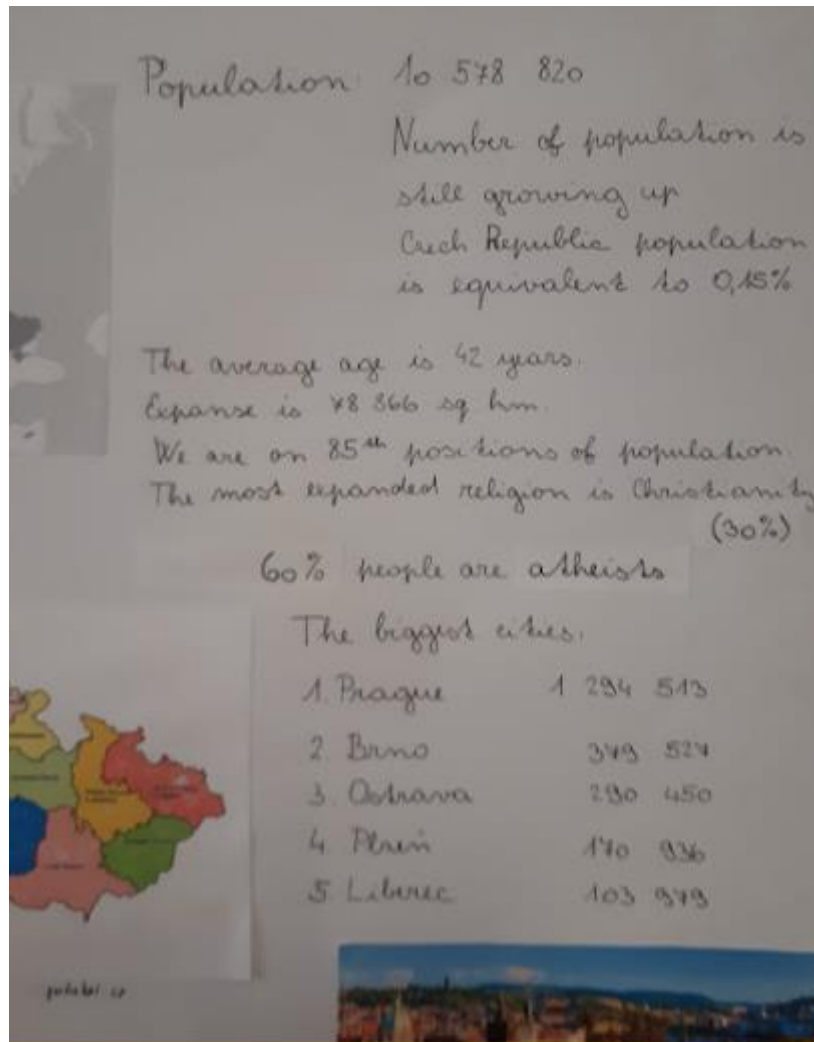 Population: 10 578 820
Number of population is
still growing up
Czech Republic population
is equivalent to 0,15%
The average age is 42 years.
Expanse is 78 866 sq km.
We are on 85th positions of population.
The most expanded religion is Christianity
(30%)
60% people are atheists
The biggest cities.
1. Prague 1 294 513
2. Brno 379 527
3. Ostrava 290 450
4. Plzeň 170 936
5. Liberec 103 979